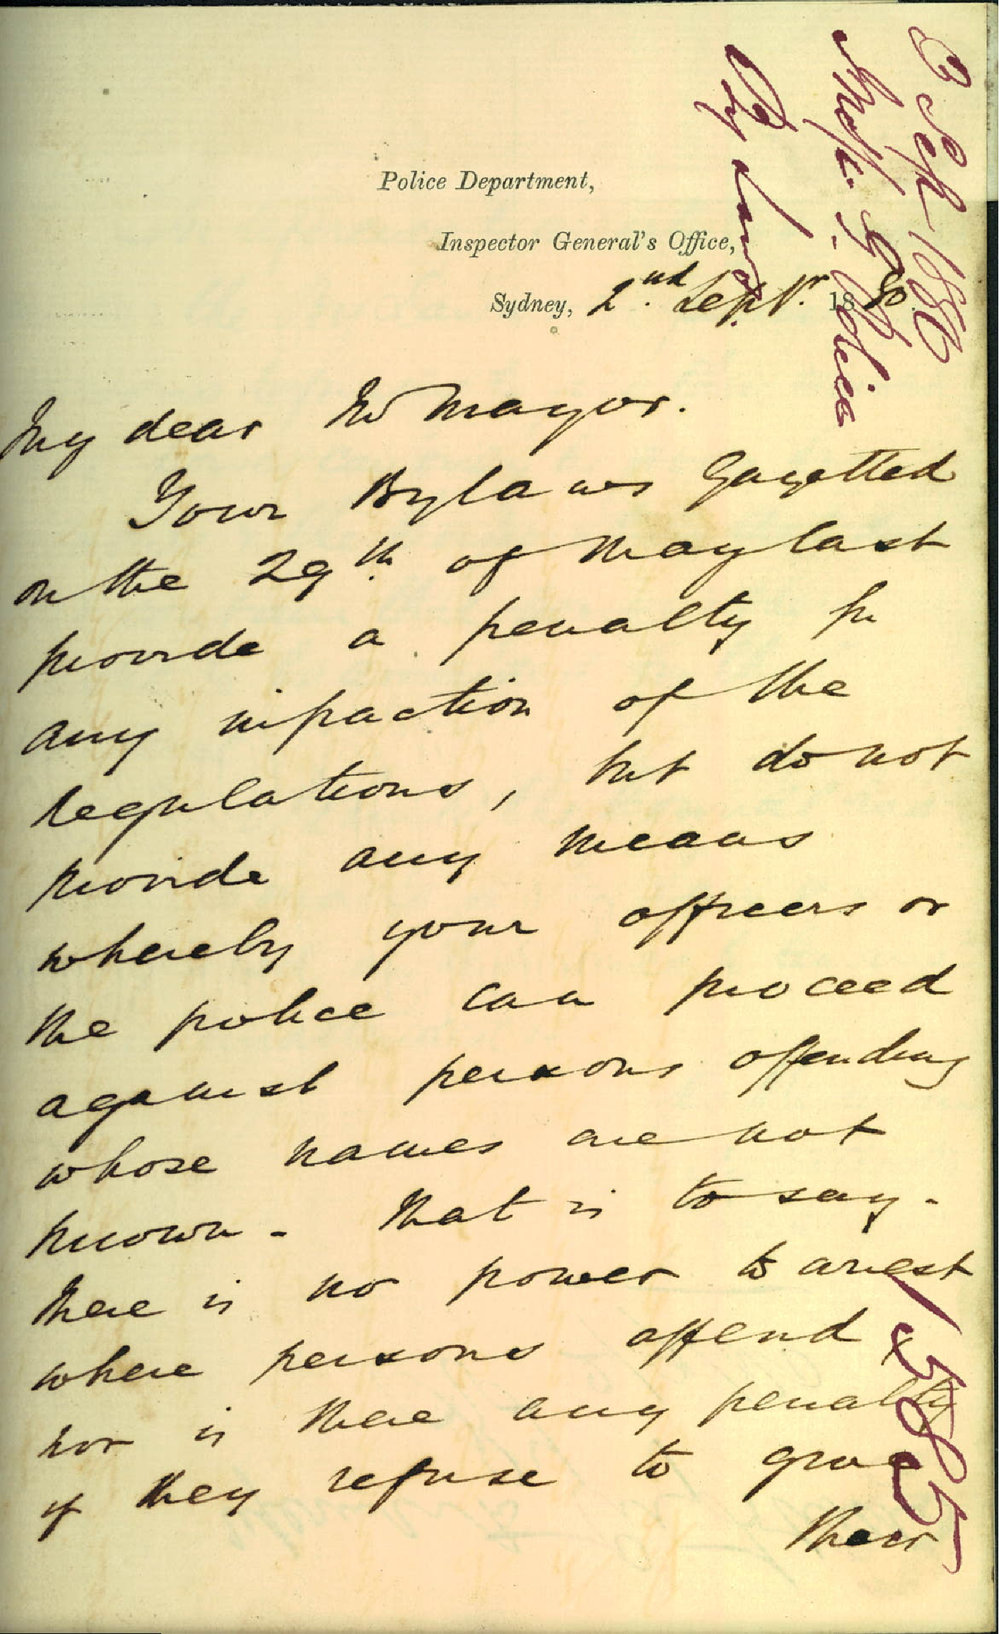 Police Department,
Inspector General's Office,
Sydney, 2nd. Septr. 1880.
3 Sept 1880
Insp. G. Police
By Laws
My dear Mr Mayor.
Your Bylaws Gazetted
on the 29th. of May last
provide a penalty for
any infraction of the
regulations, but do not
provide any means
whereby your officers or
the police can proceed
against persons offending
whose names are not
known - That is to say -
there is no power to arrest
where persons offend
nor is there any penalty
if they refuse to give
their